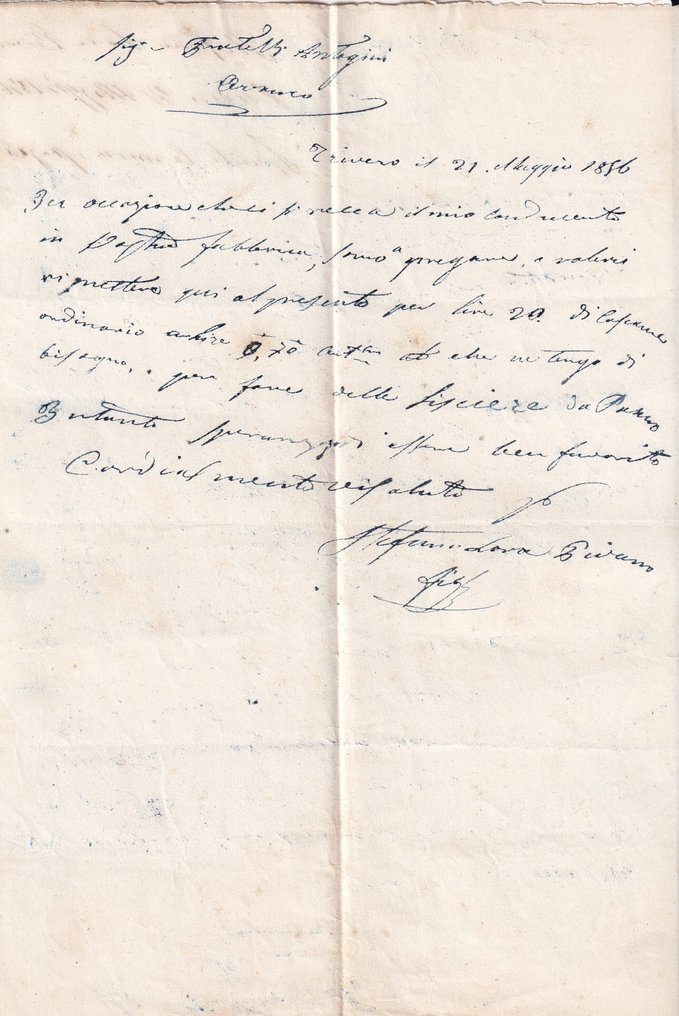 Sig.ri Fratelli Antogini
Trivero il 21 Maggio 1856
Per occazione che si si recca il mio conducento
in fabbrica, sono a pregare, a volersi
rimettere qui al presento per lire 20. di Cascame
ordinario a lire 0,70 che ne tengo di
bisogno, per fare delle lisiere da Panno
Intanto speranzoso di essere ben favorito
Cordialmento vi saluto
Stefano Lora Pivano